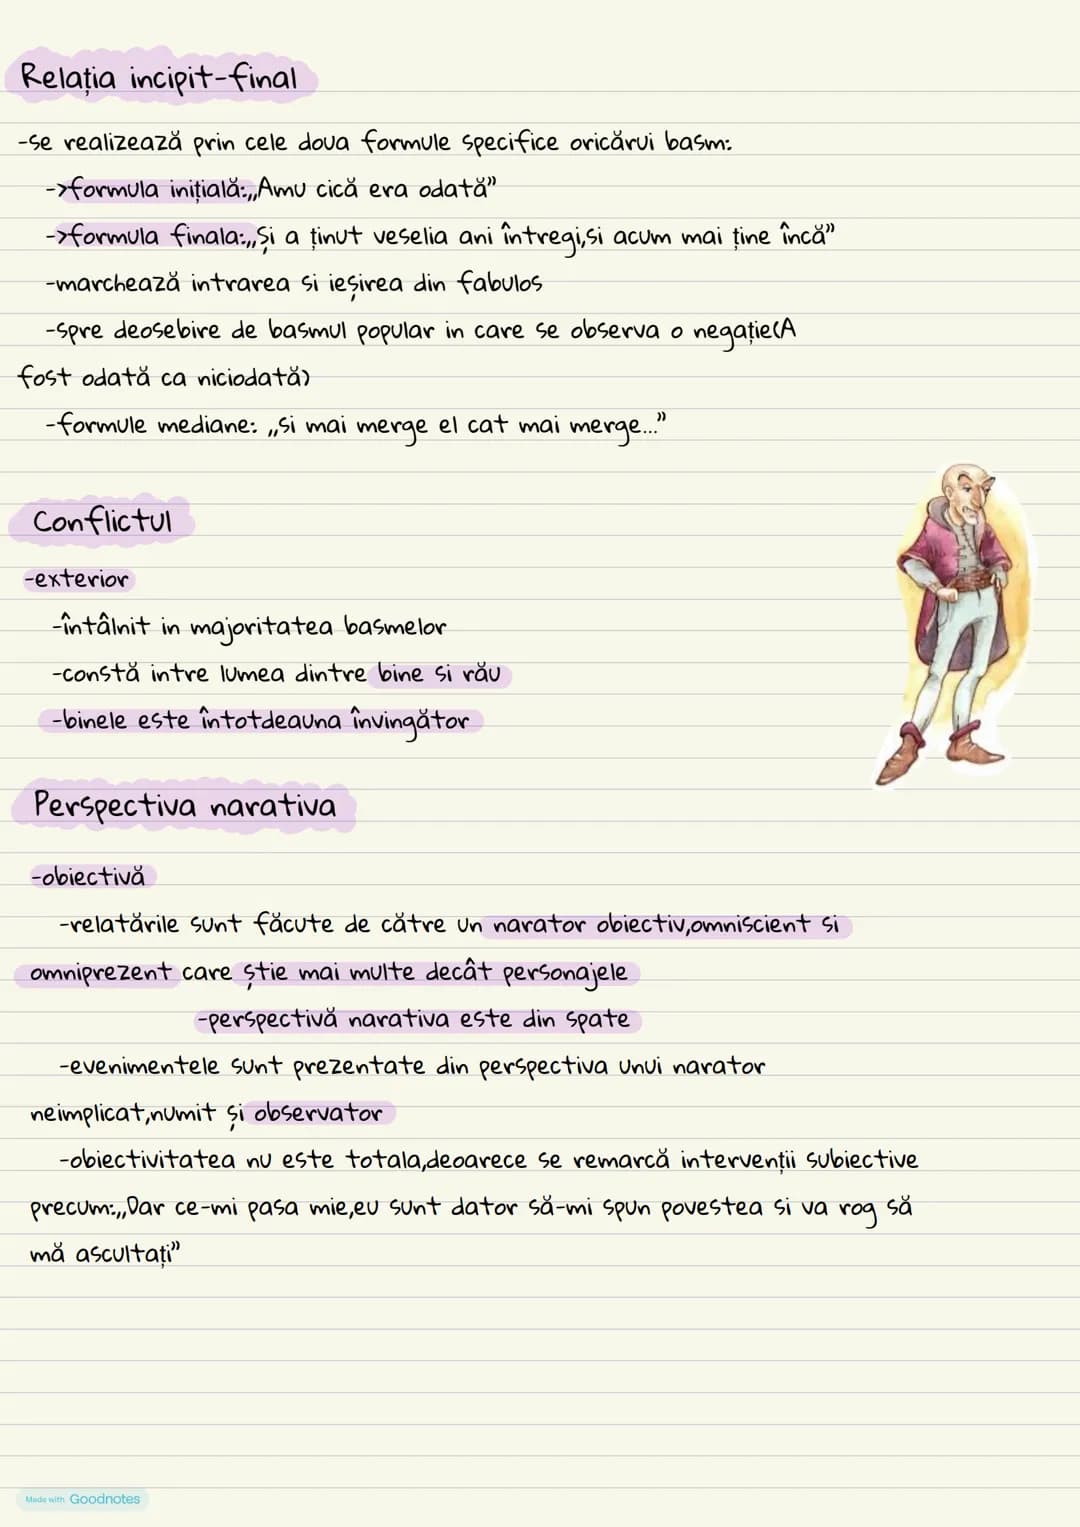 Relația incipit-final
-se realizează prin cele doua formule specifice oricărui basm:
->formula inițială:,,Amu cică era odată”
->formula finala:,,Și a ținut veselia ani întregi,si acum mai ține încă”
-marchează intrarea si ieșirea din fabulos
-spre deosebire de basmul popular in care se observa o negație(A
fost odată ca niciodată)
-formule mediane: ,,si mai merge el cat mai merge...”
Conflictul
-exterior
-întâlnit in majoritatea basmelor
-constă intre lumea dintre bine si rău
-binele este întotdeauna învingător
Perspectiva narativa
-obiectivă
-relatările sunt făcute de către un narator obiectiv,omniscient si
omniprezent care știe mai multe decât personajele
-perspectivă narativa este din spate
-evenimentele sunt prezentate din perspectiva unui narator
neimplicat,numit și observator
-obiectivitatea nu este totala,deoarece se remarcă intervenții subiective
precum:,,Dar ce-mi pasa mie,eu sunt dator să-mi spun povestea si va rog să
mă ascultați”
Made with Goodnotes